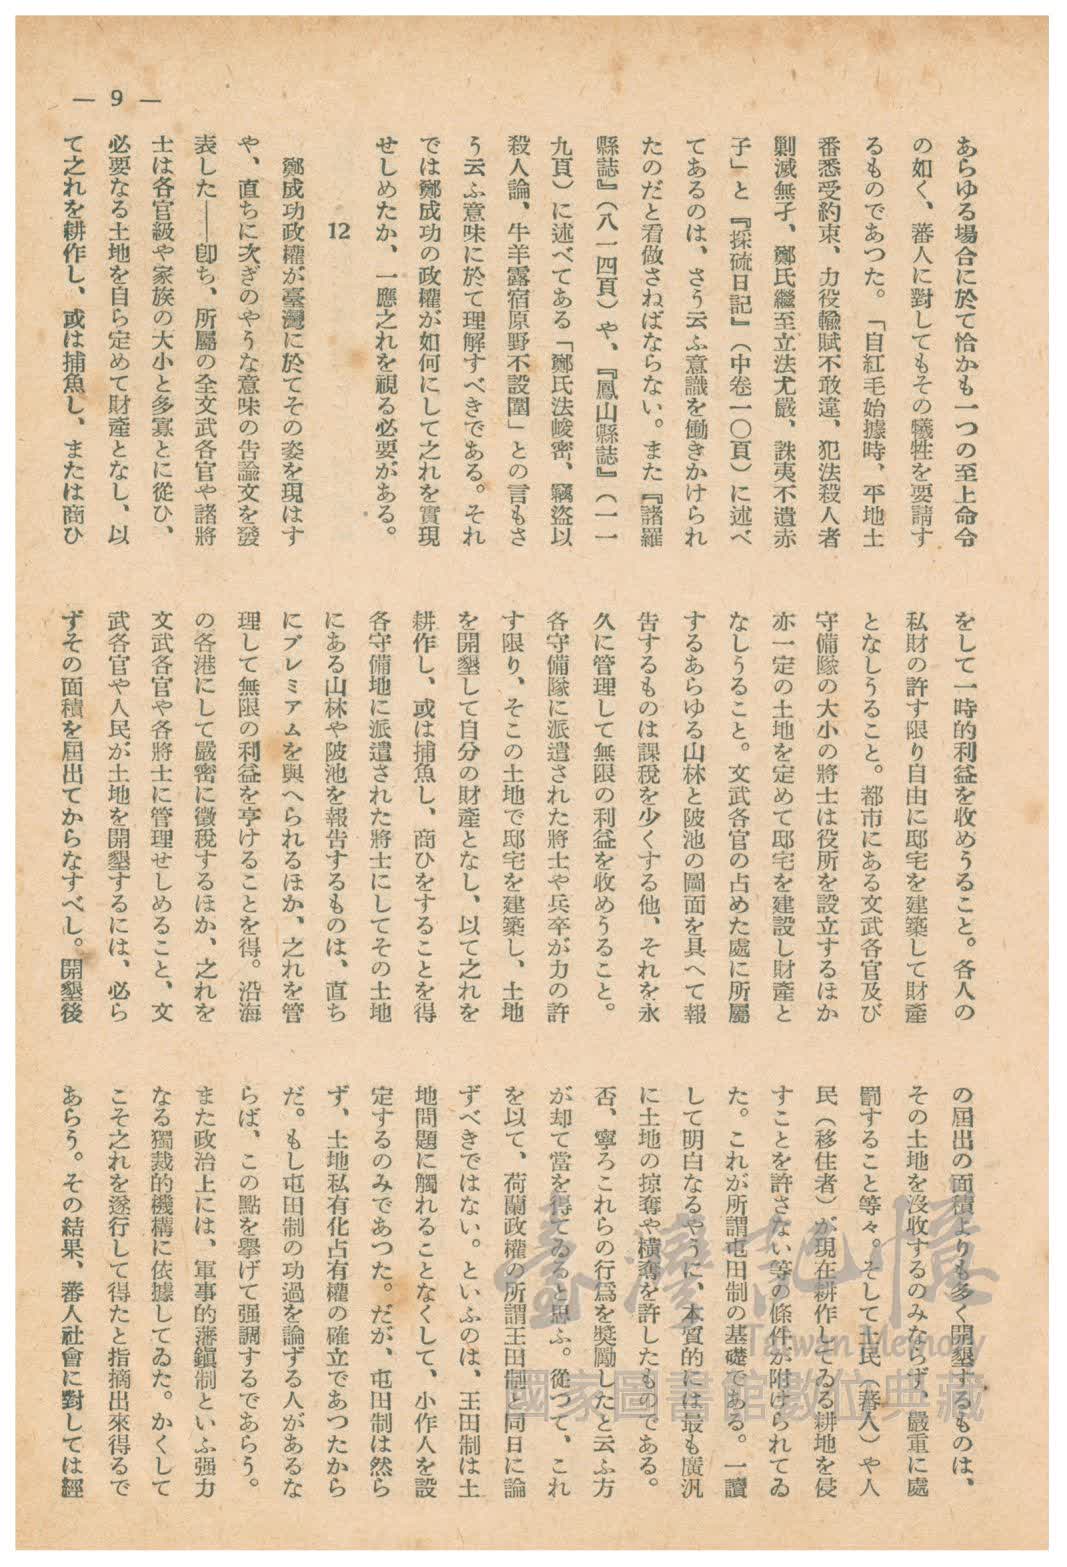 — 9 —
あらゆる場合に於て恰かも一つの至上命令
の如く、蕃人に對してもその犧牲を要請す
るものであつた。「自紅毛始據時、平地土
番悉受約束、力役輸賦不敢違、犯法殺人者
剿滅無孑、鄭氏繼至立法尤嚴、誅夷不遺赤
子」と『採硫日記』（中卷一〇頁）に述べ
てあるのは、さう云ふ意識を働きかけられ
たのだと看做さねばならない。また『諸羅
縣誌』（八一四頁）や、『鳳山縣誌』（一一
九頁）に述べてある「鄭氏法峻密、竊盜以
殺人論、牛羊露宿原野不設圍」との言もさ
う云ふ意味に於て理解すべきである。それ
では鄭成功の政權が如何にして之れを實現
せしめたか、一應之れを視る必要がある。
12
鄭成功政權が臺灣に於てその姿を現はす
や、直ちに次ぎのやうな意味の告論文を發
表した——卽ち、所屬の全文武各官や諸將
士は各官級や家族の大小と多寡とに從ひ、
必要なる土地を自ら定めて財產となし、以
て之れを耕作し、或は捕魚し、または商ひ
をして一時的利益を收めうること。各人の
私財の許す限り自由に邸宅を建築して財產
となしうること。都市にある文武各官及び
守備隊の大小の將士は役所を設立するほか
亦一定の土地を定めて邸宅を建設し財產と
なしうること。文武各官の占めた處に所屬
するあらゆる山林と陂池の圖面を具へて報
吿するものは課稅を少くする他、それを永
久に管理して無限の利益を收めうること。
各守備隊に派遣された將士や兵卒が力の許
す限り、そこの土地で邸宅を建築し、土地
を開墾して自分の財產となし、以て之れを
耕作し、或は捕魚し、商ひをすることを得
各守備地に派遣された將士にしてその土地
にある山林や陂池を報告するものは、直ち
にプレミアムを與へられるほか、之れを管
理して無限の利益を享けることを得。沿海
の各港にして嚴密に徵稅するほか、之れを
文武各官や各將士に管理せしめること、文
武各官や人民が土地を開墾するには、必ら
ずその面積を屆出てからなすべし。開墾後
の屆出の面積よりも多く開墾するものは、
その土地を沒收するのみならず、嚴重に處
罰すること等々。そして土民（蕃人）や人
民（移住者）が現在耕作してゐる耕地を侵
すことを許さない等の條件が附けられてゐ
た。これが所謂屯田制の基礎である。一讀
して明白なるやうに、本質的には最も廣汎
に土地の掠奪や橫奪を許したものである。
否、寧ろこれらの行爲を奬勵したと云ふ方
が却て當を得てゐると思ふ。從つて、これ
を以て、荷蘭政權の所謂王田制と同日に論
ずべきではない。といふのは、王田制は土
地問題に觸れることなくして、小作人を設
定するのみであつた。だが、屯田制は然ら
ず、土地私有化占有權の確立であつたから
だ。もし屯田制の功過を論ずる人があるな
らば、この點を擧げて强調するであらう。
また政治上には、軍事的藩鎭制といふ强力
なる獨裁的機構に依據してゐた。かくして
こそ之れを遂行して得たと指摘出來得るで
あらう。その結果、蕃人社會に對しては經
臺灣記憶
Taiwan Memory
國家圖書館數位典藏